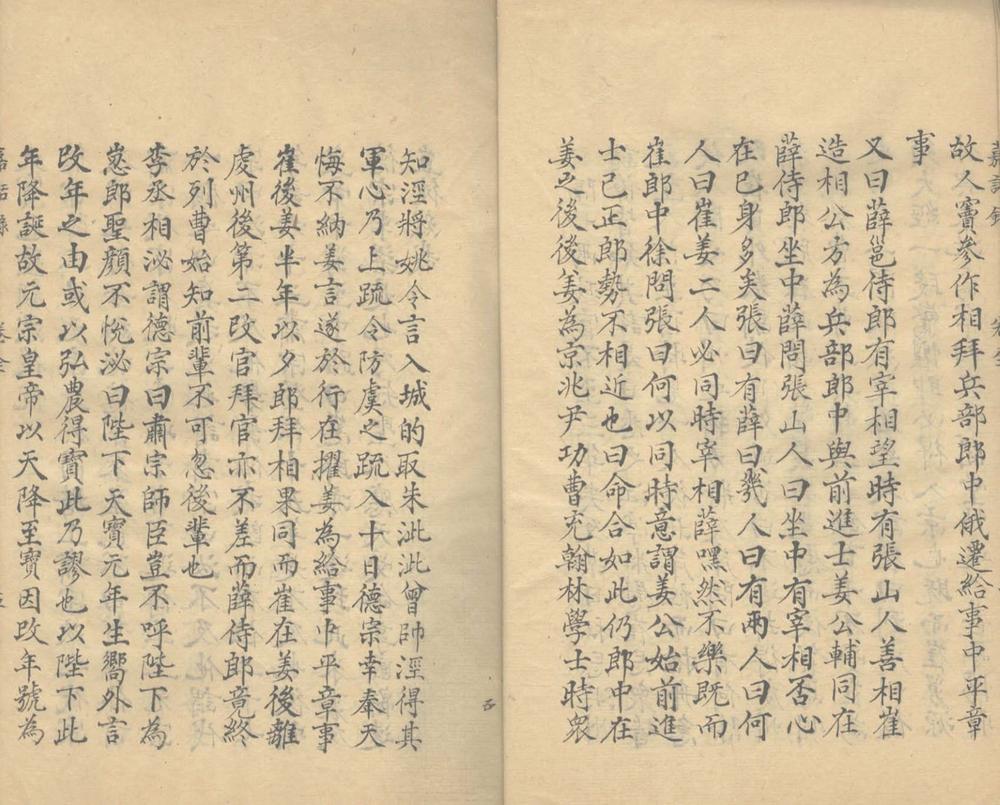 嘉話錄
故人竇參作相拜兵部郎中俄遷給事中平章
事
又曰薛邕侍郎有宰相望時有張山人善相崔
造相公方為兵部郎中與前進士姜公輔同在
薛侍郎坐中薛問張山人曰坐中有宰相否心
在已身多矣張曰有薛曰幾人曰有兩人曰何
人曰崔姜二人必同時宰相薛嘿然不樂既而
崔郎中徐問張曰何以同時意謂姜公始前進
士已正郎勢不相近也曰命合如此仍郎中在
姜之後後姜為京兆尹功曹充翰林學士時衆
知涇將姚令言入城的取朱泚泚曾帥涇得其
軍心乃上疏令防虞之疏入十日德宗幸奉天
悔不納姜言遂於行在擢姜為給事中平章事
崔後姜半年以夕郎拜相果同而崔在姜後離
虔州後第二改官拜官亦不差而薛侍郎竟終
於列曹始知前輩不可忽後輩也
李丞相泌謂德宗曰肅宗師臣豈不呼陛下為
崽郎聖顏不悅泌曰陛下天寶元年生嚮外言
改年之由或以弘農得寶此乃謬也以陛下此
年降誕故元宗皇帝以天降至寶因改年號為
嘉話錄 卷全